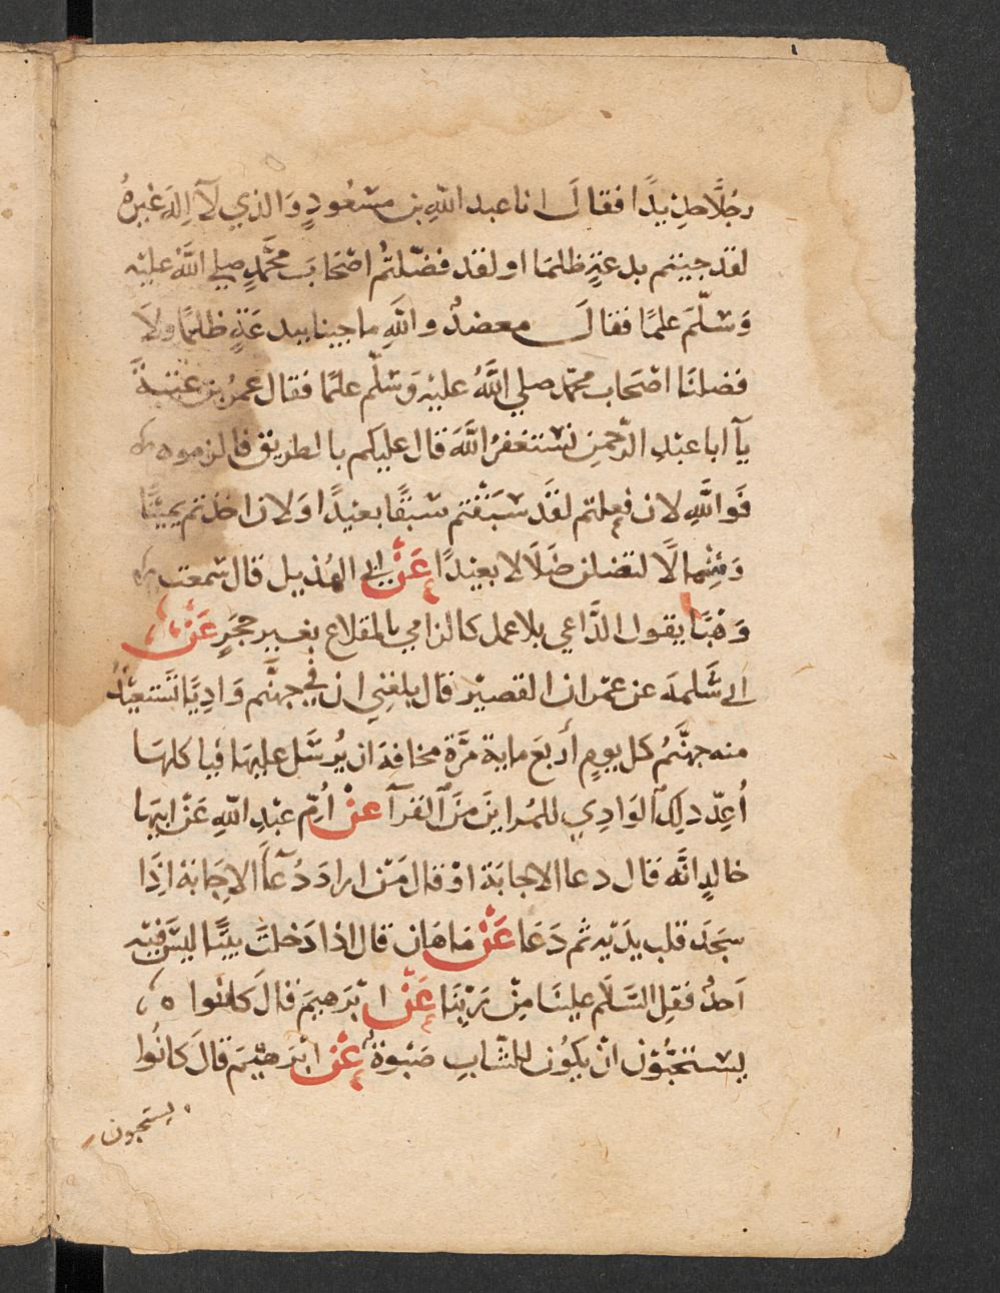 رجُلًا حديدًا فقال انا عبد اللهِ بن مسعُودٍ وَالذي لآ اِلهَ غيرهُ
لقد جيتم بدعةٍ ظلمًا او لقد فضّلتمُ اصْحابَ محمَّدٍ صلي اللهُ عليْه
وَسَلّمَ علمًا فقال معضدٌ واللهِ ما جينا ببدعَةٍ ظلمًا ولا
فضلنَا اصْحَاب محمّد صلي اللهُ عليْه وَسَلّم علمًا فقال عمرُ بن عتبةَ
يآ ابا عبْدِ الرّحمنِ نسْتغفرُ اللَّهَ قال عليكم بالطريق فالزموه
فَواللَّهِ لان فعلتم لقَد سَبَقْتم سَبْقًا بعيْدًا وَلان اخذتم يميْنًا
وَشِمالًا لتضلن ضَلَالا بعيْدًا عَنْ ابي الهُذيل قال سَمعت
وَهْبًا يقول الدَّاعي بلا عمل كالرامي بالمقلاع بغيرِ حجَرٍ عَنْ
ابي سَلمة عن عمْران القصيْر قال بلغنِي ان في جهنَّم وَادِيًا تَستعيْذُ
منه جهنَّمُ كل يومٍ أربَع ماية مَرَّة مخافة ان يُرسَل عليهَا فيا كلهَا
اُعِدّ ذلِك الوَادِي للمُراينَ منَ القرآ عنْ اُمّ عبْدِ اللّهِ عَنْ ابيهَا
خالدٍ انَّه قال دعا الاجابَة اوْ قال مَنْ ارادَ دُعآَ الاجابَة اِذَا
سجَد قلب يدَيْه ثم دَعَا عَنْ مَاهَان قال اذا دَخلتَ بيتًا ليسَ فيْه
اَحدٌ فقلِ السَّلَم علينَا مِنْ رَبّنَا عَنْ ابْرَهيمَ قالَ كانُوا ه
يستحبُّوْن انْ يكوُن للشّابِ صَبْوة عَنْ ابْرَهيْم قالَ كانُوا
يستحبون